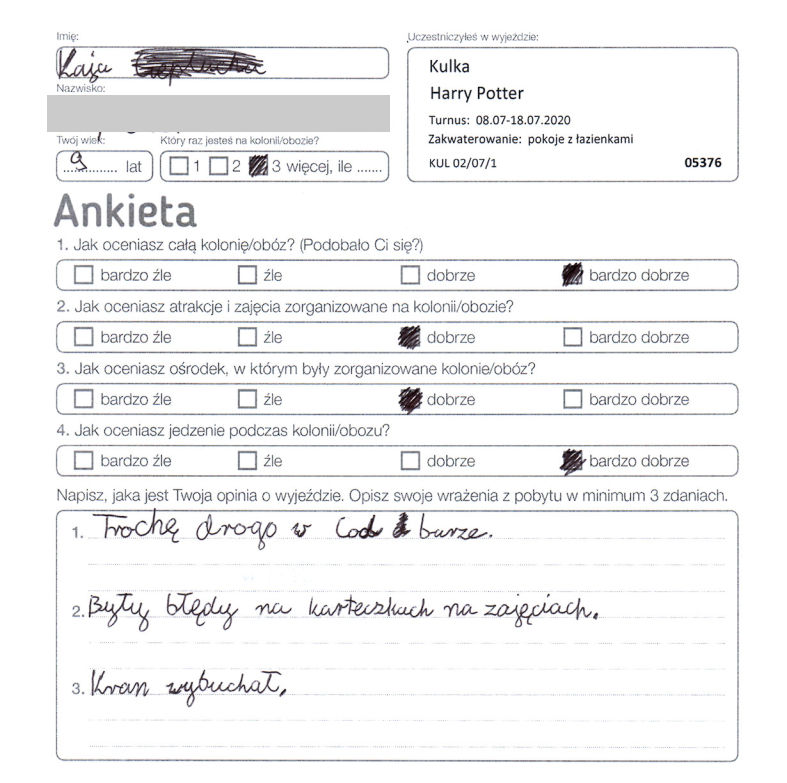 Imię:
Kaja
Nazwisko:
Twój wiek:
Który raz jesteś na kolonii/obozie?
9 lat
1 2 3 więcej, ile .......
Uczestniczyłeś w wyjeździe:
Kulka
Harry Potter
Turnus: 08.07-18.07.2020
Zakwaterowanie: pokoje z łazienkami
KUL 02/07/1 05376
Ankieta
1. Jak oceniasz całą kolonię/obóz? (Podobało Ci się?)
bardzo źle źle dobrze bardzo dobrze
2. Jak oceniasz atrakcje i zajęcia zorganizowane na kolonii/obozie?
bardzo źle źle dobrze bardzo dobrze
3. Jak oceniasz ośrodek, w którym były zorganizowane kolonie/obóz?
bardzo źle źle dobrze bardzo dobrze
4. Jak oceniasz jedzenie podczas kolonii/obozu?
bardzo źle źle dobrze bardzo dobrze
Napisz, jaka jest Twoja opinia o wyjeździe. Opisz swoje wrażenia z pobytu w minimum 3 zdaniach.
1. Trochę drogo w burze.
2. Były błędy na karteczkach na zajęciach.
3. Kran wybuchał.